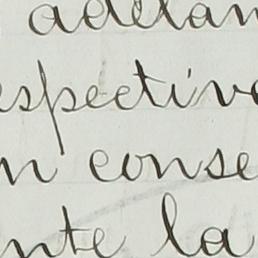 adelan
espective
n conse
nte la